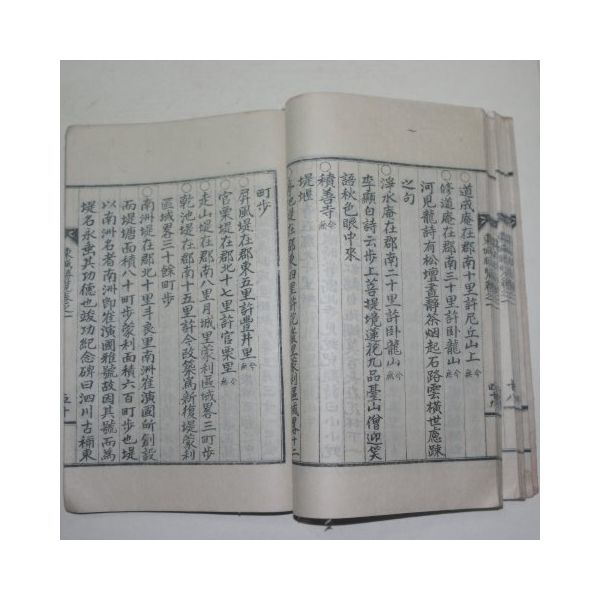 ○道成庵在郡南十里許尼丘山上 今無
○修道庵在郡南三十里許臥龍山 今無
河見龍詩有松壇晝靜茶烟起石路雲橫世慮踈
之句
○淨水庵在郡南二十里許臥龍山 今無
李顯白詩云步上菩提境蓮花九品臺山僧迎笑
語秋色眼中來
積善寺 今無
堤堰
池堤在郡東四里許 里蒙利區域畧廿二
町步
○屛風堤在郡東五里許豐井里 今無
○官栗堤在郡北十七里許官栗里 今無
○走山堤在郡南八里月城里蒙利區域畧三町步
○乾池堤在郡南十五里許今改築爲新復堤蒙利
區域畧三十餘町步
○南洲堤在郡北十里斗良里南洲崔演國所創設
而堤塘面積八十町步蒙利面積六百町步也堤
以南洲名者南洲卽崔演國雅號故因其號而爲
堤名永垂其功德也竣功紀念碑曰泗川古稱東
五十